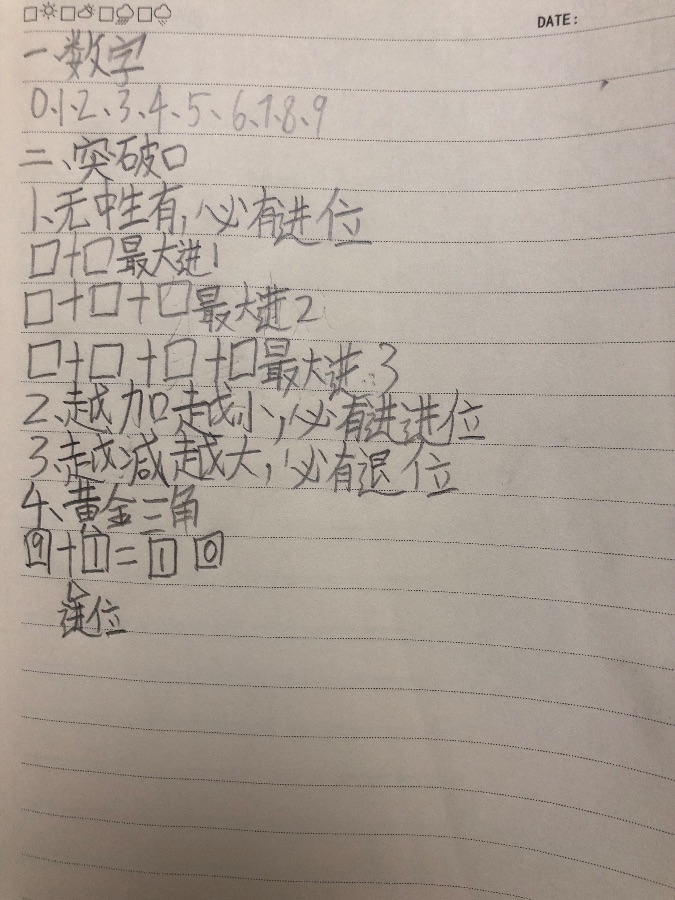 DATE:
一、数字
0、1、2、3、4、5、6、7、8、9
二、突破口
1、无中生有，必有进位
□+□最大进1
□+□+□最大进2
□+□+□+□最大进3
2、越加越小，必有进进位
3、越减越大，必有退位
4、黄金三角
9+1=1 0
进位